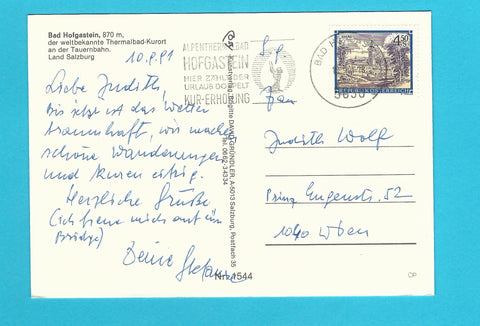 Bad Hofgastein, 870 m,
der weltbekannte Thermalbad-Kurort
an der Tauernbahn.
Land Salzburg
10.9.91
Liebe Judith,
Bis jetzt ist das Wetter
traumhaft, wir machen
schöne Wanderungen
und kuren eifrig.
Herzliche Grüße
(ich freue mich auf ein
Bridge)
Deine Stefanie
ALPENTHERMALBAD
HOFGASTEIN
HIER ZÄHLT DER
URLAUB DOPPELT
KUR-ERHOLUNG
Brigitte DAVID-GRÜNDLER, A-5013 Salzburg, Postfach 35
Tel. 0662-34334
Nr. 1544
BAD
5630
4.50
REPUBLIK ÖSTERREICH
Frau
Judith Wolf
Prinz Eugenstr. 52
1040 Wien